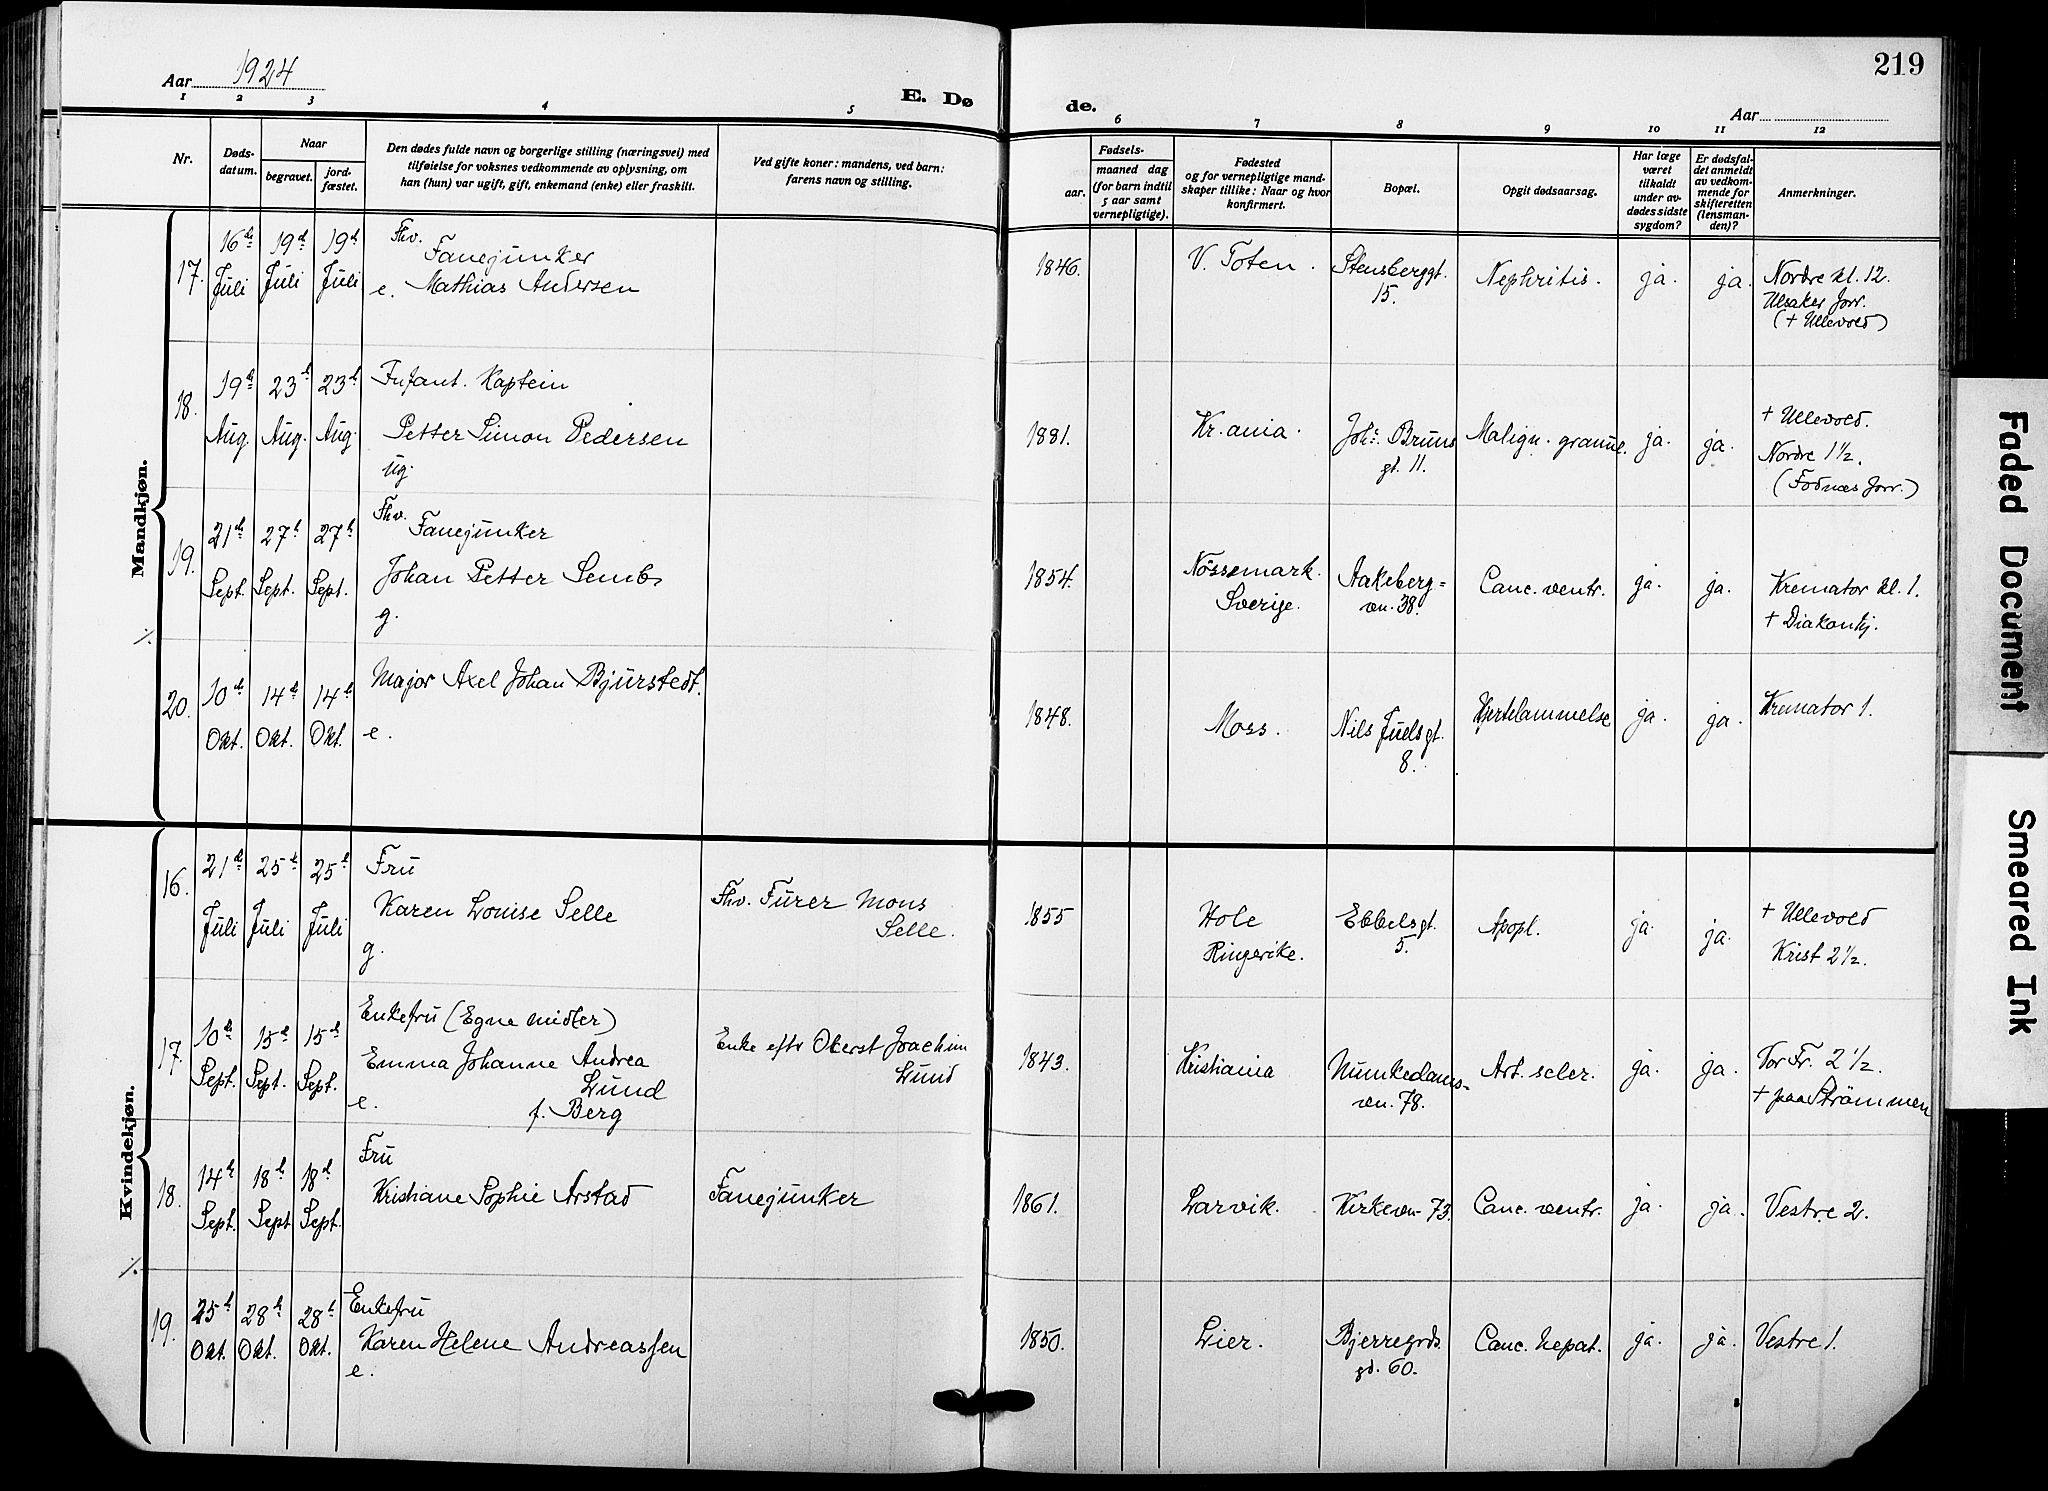 Aar 1924
E. Dø
de.
Aar
219
1 2 3 4 5 6 7 8 9 10 11 12
Nr.
Døds-
datum.
Naar
begravet.
jord-
fæstet.
Den dødes fulde navn og borgerlige stilling (næringsvei) med
tilføielse for voksnes vedkommende av oplysning, om
han (hun) var ugift, gift, enkemand (enke) eller fraskilt.
Ved gifte koner: mandens, ved barn:
farens navn og stilling.
Fødsels-
aar.
maaned dag
(for barn indtil
5 aar samt
vernepligtige).
Fødested
og for vernepligtige mand-
skaper tillike: Naar og hvor
konfirmert.
Bopæl.
Opgit dødsaarsag.
Har læge
været
tilkaldt
under av-
dødes sidste
sygdom?
Er dødsfal-
det anmeldt
av vedkom-
mende for
skifteretten
(lensman-
den)?
Anmerkninger.
Mandkjøn.
17. 16de Juli 19de Juli 19de Juli
Fhv.
Fanejunker
e. Mathias Andersen
1846. V. Toten. Stensberggt.
15.
Nephritis. ja. ja.
Nordre kl. 12.
Ulsaker forr.
(+ Ullevold)
18. 19de Aug. 23de Aug. 23de Aug.
Infant. Kaptein
Petter Simon Pedersen
ug.
1881. Kr.ania. Johs Bruns
gt. 11.
Malign. granul. ja. ja.
+ Ullevold.
Nordre 1½.
(Fodnæs forr.)
19. 21de Sept. 27de Sept. 27de Sept.
Fhv.
Fanejunker
Johan Petter Semb
g.
1854. Nössemark.
Sverige.
Aakeberg=
vn. 38.
Canc. ventr. ja. ja.
Kremator kl. 1.
+ Diakonhj.
%
20. 10de Okt. 14de Okt. 14de Okt.
Major Axel Johan Bjurstedt.
e.
1848. Moss. Nils Juelsgt.
8.
Hjertelammelse ja. ja. Kremator 1.
Kvindekjøn.
16. 21de Juli 25de Juli 25de Juli
Fru
Karen Louise Selle
g.
Fhv. Furer Mons
Selle.
1855 Hole
Ringerike.
Ebbelsgt.
5.
Apopl. ja. ja.
+ Ullevold
Krist 2½.
17. 10de Sept. 15de Sept. 15de Sept.
Enkefru (Egne midler)
Emma Johanne Andrea
Lund
e. f. Berg
Enke eftr Oberst Joachim
Lund
1843. Kristiania Munkedams-
vn. 78.
Art. scler. ja. ja.
Vor Fr. 2½.
+ paa Strömmen
18. 14de Sept. 18de Sept 18de Sept.
Fru
Kristiane Sophie Arstad
Fanejunker
1861. Larvik. Kirkevn 73. Canc. ventr. ja. ja. Vestre 2.
%
19. 25de Okt. 28de Okt. 28de Okt.
Enkefru
Karen Helene Andreassen
e.
1850. Lier. Bjerregrds.
gd. 60.
Canc. hepat. ja. ja. Vestre 1.
Faded Document
Smeared Ink